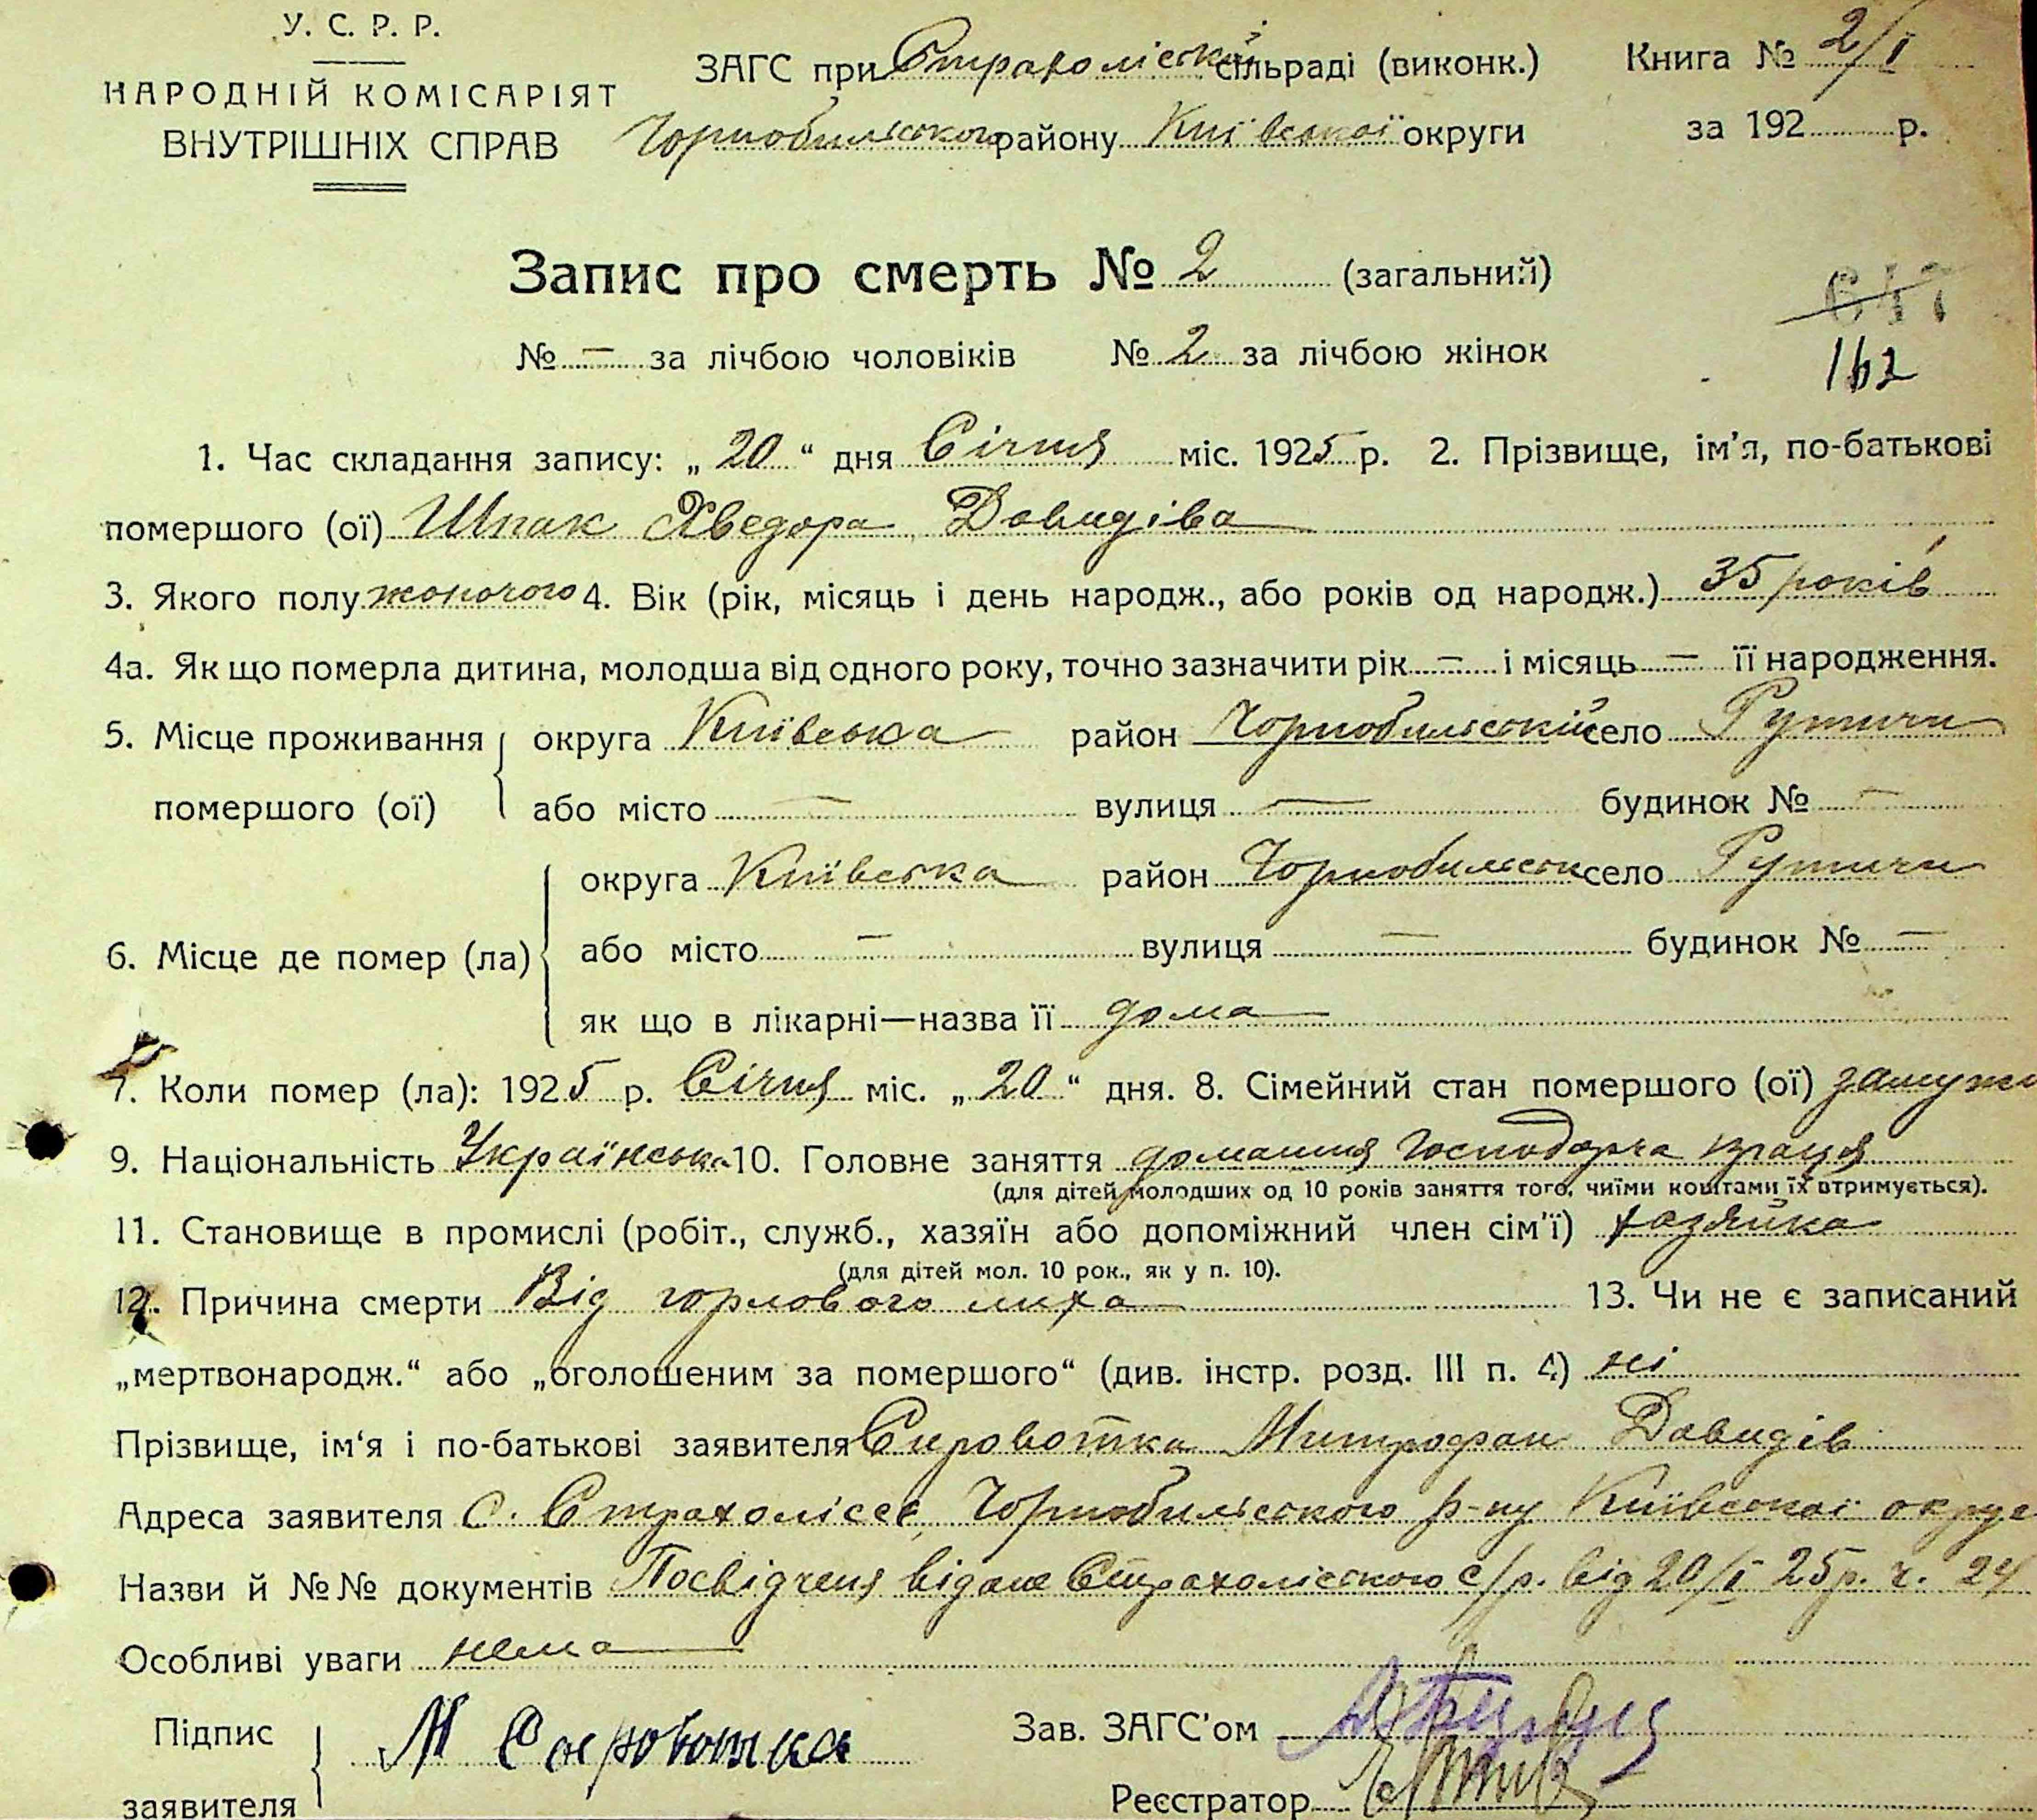 У. С. Р. Р.
НАРОДНІЙ КОМІСАРІЯТ
ВНУТРІШНІХ СПРАВ
ЗАГС при Страхоліській сільраді (виконк.)
Чорнобильського району Київської округи
Книга № 2/I
за 192 р.
Запис про смерть № 2 (загальний)
№ — за лічбою чоловіків № 2 за лічбою жінок
647
162
1. Час складання запису: „20“ дня Січня міс. 1925 р. 2. Прізвище, ім'я, по-батькові
помершого (ої) Шпак Хведора Давидіва
3. Якого полу жоночого 4. Вік (рік, місяць і день народж., або років од народж.) 35 років
4а. Як що померла дитина, молодша від одного року, точно зазначити рік — і місяць — її народження.
5. Місце проживання округа Київська район Чорнобильський село Рутичи
помершого (ої) або місто — вулиця — будинок № —
округа Київська район Чорнобильськ село Рутичи
6. Місце де помер (ла) або місто — вулиця — будинок № —
як що в лікарні—назва її дома
7. Коли помер (ла): 1925 р. Січня міс. „20“ дня. 8. Сімейний стан помершого (ої) замужн
9. Національність Українська 10. Головне заняття домашня господарча праця
(для дітей молодших од 10 років заняття того, чиїми коштами їх втримується).
11. Становище в промислі (робіт., служб., хазяїн або допоміжний член сім'ї) хазяйка
(для дітей мол. 10 рок., як у п. 10).
12. Причина смерти Від горлового лиха 13. Чи не є записаний
„мертвонародж.“ або „оголошеним за помершого“ (див. інстр. розд. III п. 4) ні
Прізвище, ім'я і по-батькові заявителя Сировотка Митрофан Давидів
Адреса заявителя С. Страхоліссє, Чорнобильського р-ну Київської округи
Назви й №№ документів Посвідченя відане Страхоліською с/р. від 20/I 25р. ч. 24
Особливі уваги нема
Підпис М Сировотка Зав. ЗАГС'ом
заявителя Реєстратор